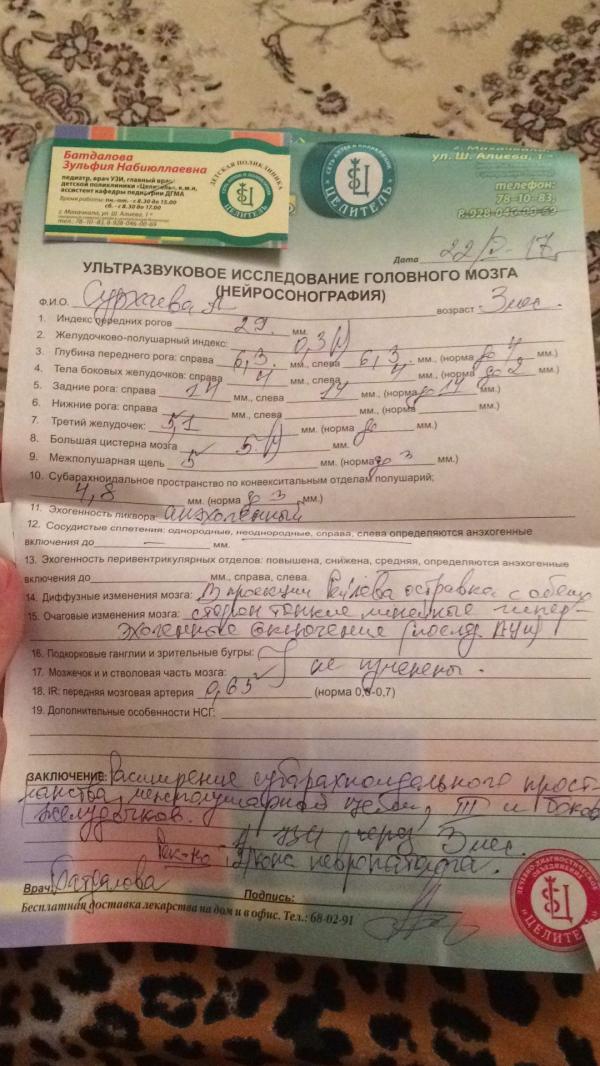 Батдалова
Зульфия Набиюллаевна
педиатр, врач УЗИ, главный врач
детской поликлиники «Целитель», к.м.н,
ассистент кафедры педиатрии ДГМА
Время работы: пн.-пт. - с 8.30 до 15.00
сб. - с 8.30 до 17.00
г. Махачкала, ул. Ш. Алиева, 1
тел.: 78-10-83, 8-928-046-00-69
ДЕТСКАЯ ПОЛИКЛИНИКА
ЦЕЛИТЕЛЬ
СЕТЬ АПТЕК И ПОЛИКЛИНИК
ЦЕЛИТЕЛЬ
г. Махачкала,
ул. Ш. Алиева, 1
телефон:
78-10-83,
Дата 22/ 17г
УЛЬТРАЗВУКОВОЕ ИССЛЕДОВАНИЕ ГОЛОВНОГО МОЗГА
(НЕЙРОСОНОГРАФИЯ)
Ф.И.О. Сурхаева А возраст 3 мес.
1. Индекс передних рогов 29. мм.
2. Желудочково-полушарный индекс: 0,3
3. Глубина переднего рога: справа 6,3 мм., слева 6,3 мм., (норма до 4 мм.)
4. Тела боковых желудочков: справа 4 мм., слева 4 мм., (норма до 2 мм.)
5. Задние рога: справа 14 мм., слева 14 мм., (норма до 14 мм.)
6. Нижние рога: справа мм., слева мм., (норма мм.)
7. Третий желудочек: 5,1 мм. (норма до мм.)
8. Большая цистерна мозга 5 мм.
9. Межполушарная щель 5 мм. (норма до 3 мм.)
10. Субарахноидальное пространство по конвекситальным отделам полушарий;
4,8 мм. (норма до 3 мм.)
11. Эхогенность ликвора: анэхогенный
12. Сосудистые сплетения: однородные, неоднородные, справа, слева определяются анэхогенные
включения до мм.
13. Эхогенность перивентрикулярных отделов: повышена, снижена, средняя, определяются анэхогенные
включения до мм., справа, слева.
14. Диффузные изменения мозга: В проекции Рейлева островка с обеих
15. Очаговые изменения мозга: сторон тонкие линейные гипер-
эхогенные включения
16. Подкорковые ганглии и зрительные бугры:
17. Мозжечок и и стволовая часть мозга: не изменены.
18. IR: передняя мозговая артерия 0,65 (норма 0,6-0,7)
19. Дополнительные особенности НСГ:
ЗАКЛЮЧЕНИЕ: Расширение субарахноидального прост-
ранства, межполушарной щели, III и боков
желудочков.
Рек-но УЗИ через 3 мес.
конс невропатолога.
Врач: Батдалова Подпись:
Бесплатная доставка лекарства на дом и в офис. Тел.: 68-02-91
ЛЕЧЕБНО-ДИАГНОСТИЧЕСКОЕ ОБЪЕДИНЕНИЕ
«ЦЕЛИТЕЛЬ»